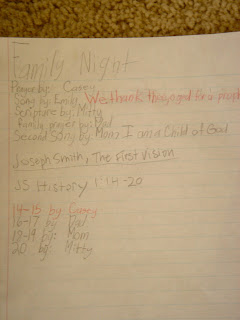 Family Night
Prayer by: Casey
Song by: Emily We thank thee, o god for a proph
Scripture by: Mitty
Family prayer by: Dad
Second Song by: Mom I am a Child of God
Joseph Smith, The First Vision
JS History 1:14-20
14-15 by: Casey
16-17 by: Dad
18-19 by: Mom
20 by: Mitty